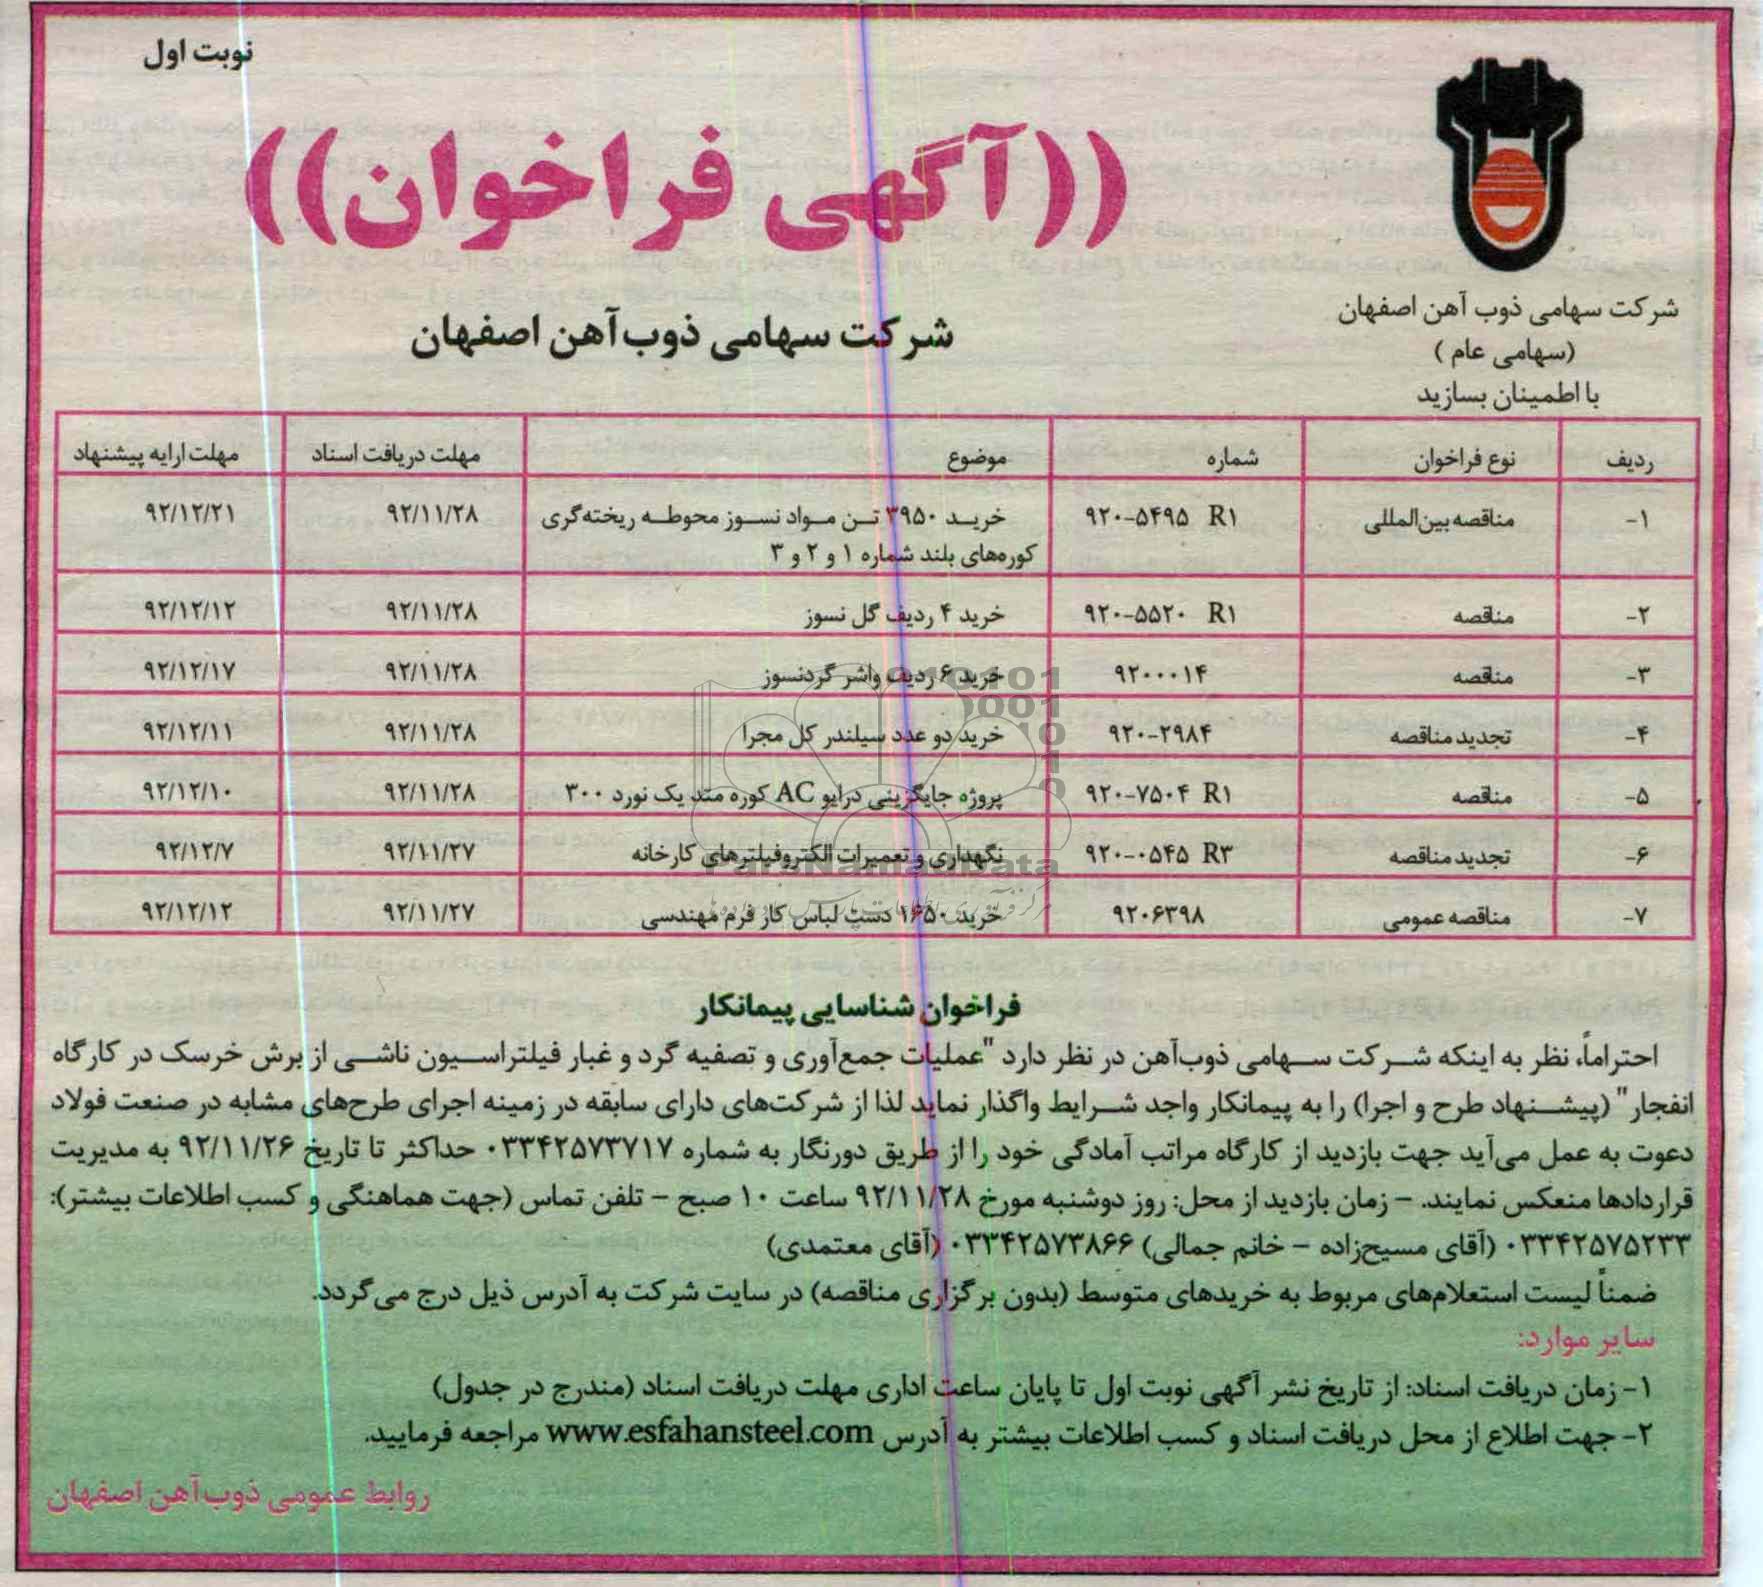 نوبت اول
((آگهی فراخوان))
شرکت سهامی ذوب آهن اصفهان
(سهامی عام )
با اطمینان بسازید
شرکت سهامی ذوب‌آهن اصفهان
ردیف نوع فراخوان شماره موضوع مهلت دریافت اسناد مهلت ارایه پیشنهاد
۱- مناقصه بین‌المللی ۹۲۰-۵۴۹۵ R۱ خرید ۳۹۵۰ تن مواد نسوز محوطه ریخته‌گری ۹۲/۱۱/۲۸ ۹۲/۱۲/۲۱
کوره‌های بلند شماره ۱ و ۲ و ۳
۲- مناقصه ۹۲۰-۵۵۲۰ R۱ خرید ۴ ردیف گل نسوز ۹۲/۱۱/۲۸ ۹۲/۱۲/۱۲
۳- مناقصه ۹۲۰۰۰۱۴ خرید ۶ ردیف واشر گردنسوز ۹۲/۱۱/۲۸ ۹۲/۱۲/۱۷
۴- تجدید مناقصه ۹۲۰-۲۹۸۴ خرید دو عدد سیلندر کل مجرا ۹۲/۱۱/۲۸ ۹۲/۱۲/۱۱
۵- مناقصه ۹۲۰-۷۵۰۴ R۱ پروژه جایگزینی درایو AC کوره متد یک نورد ۳۰۰ ۹۲/۱۱/۲۸ ۹۲/۱۲/۱۰
۶- تجدید مناقصه ۹۲۰-۰۵۴۵ R۳ نگهداری و تعمیرات الکتروفیلترهای کارخانه ۹۲/۱۱/۲۷ ۹۲/۱۲/۷
۷- مناقصه عمومی ۹۲۰۶۳۹۸ خرید ۱۶۵۰ دست لباس کار فرم مهندسی ۹۲/۱۱/۲۷ ۹۲/۱۲/۱۲
ParsNamadData
فراخوان شناسایی پیمانکار
احتراماً، نظر به اینکه شرکت سهامی ذوب‌آهن در نظر دارد "عملیات جمع‌آوری و تصفیه گرد و غبار فیلتراسیون ناشی از برش خرسک در کارگاه
انفجار" (پیشنهاد طرح و اجرا) را به پیمانکار واجد شرایط واگذار نماید لذا از شرکت‌های دارای سابقه در زمینه اجرای طرح‌های مشابه در صنعت فولاد
دعوت به عمل می‌آید جهت بازدید از کارگاه مراتب آمادگی خود را از طریق دورنگار به شماره ۰۳۳۴۲۵۷۳۷۱۷ حداکثر تا تاریخ ۹۲/۱۱/۲۶ به مدیریت
قراردادها منعکس نمایند. - زمان بازدید از محل: روز دوشنبه مورخ ۹۲/۱۱/۲۸ ساعت ۱۰ صبح - تلفن تماس (جهت هماهنگی و کسب اطلاعات بیشتر):
۰۳۳۴۲۵۷۵۲۳۳ (آقای مسیح‌زاده - خانم جمالی) ۰۳۳۴۲۵۷۳۸۶۶ (آقای معتمدی)
ضمناً لیست استعلام‌های مربوط به خریدهای متوسط (بدون برگزاری مناقصه) در سایت شرکت به آدرس ذیل درج می‌گردد.
سایر موارد:
۱- زمان دریافت اسناد: از تاریخ نشر آگهی نوبت اول تا پایان ساعت اداری مهلت دریافت اسناد (مندرج در جدول)
۲- جهت اطلاع از محل دریافت اسناد و کسب اطلاعات بیشتر به آدرس www.esfahansteel.com مراجعه فرمایید.
روابط عمومی ذوب‌آهن اصفهان